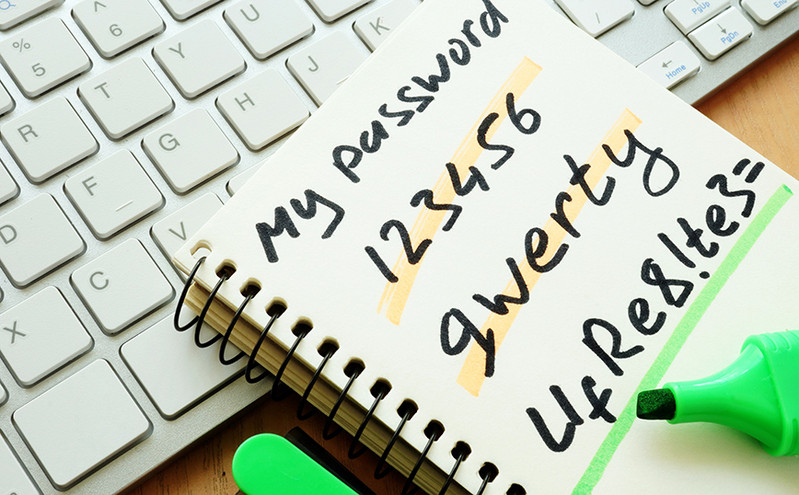 My password
123456
qwerty
UfRe8!te3=
%
5
^
6
R
T
Y
U
D
F
G
H
J
K
X
C
V
PgUp
PgDn
Home
End